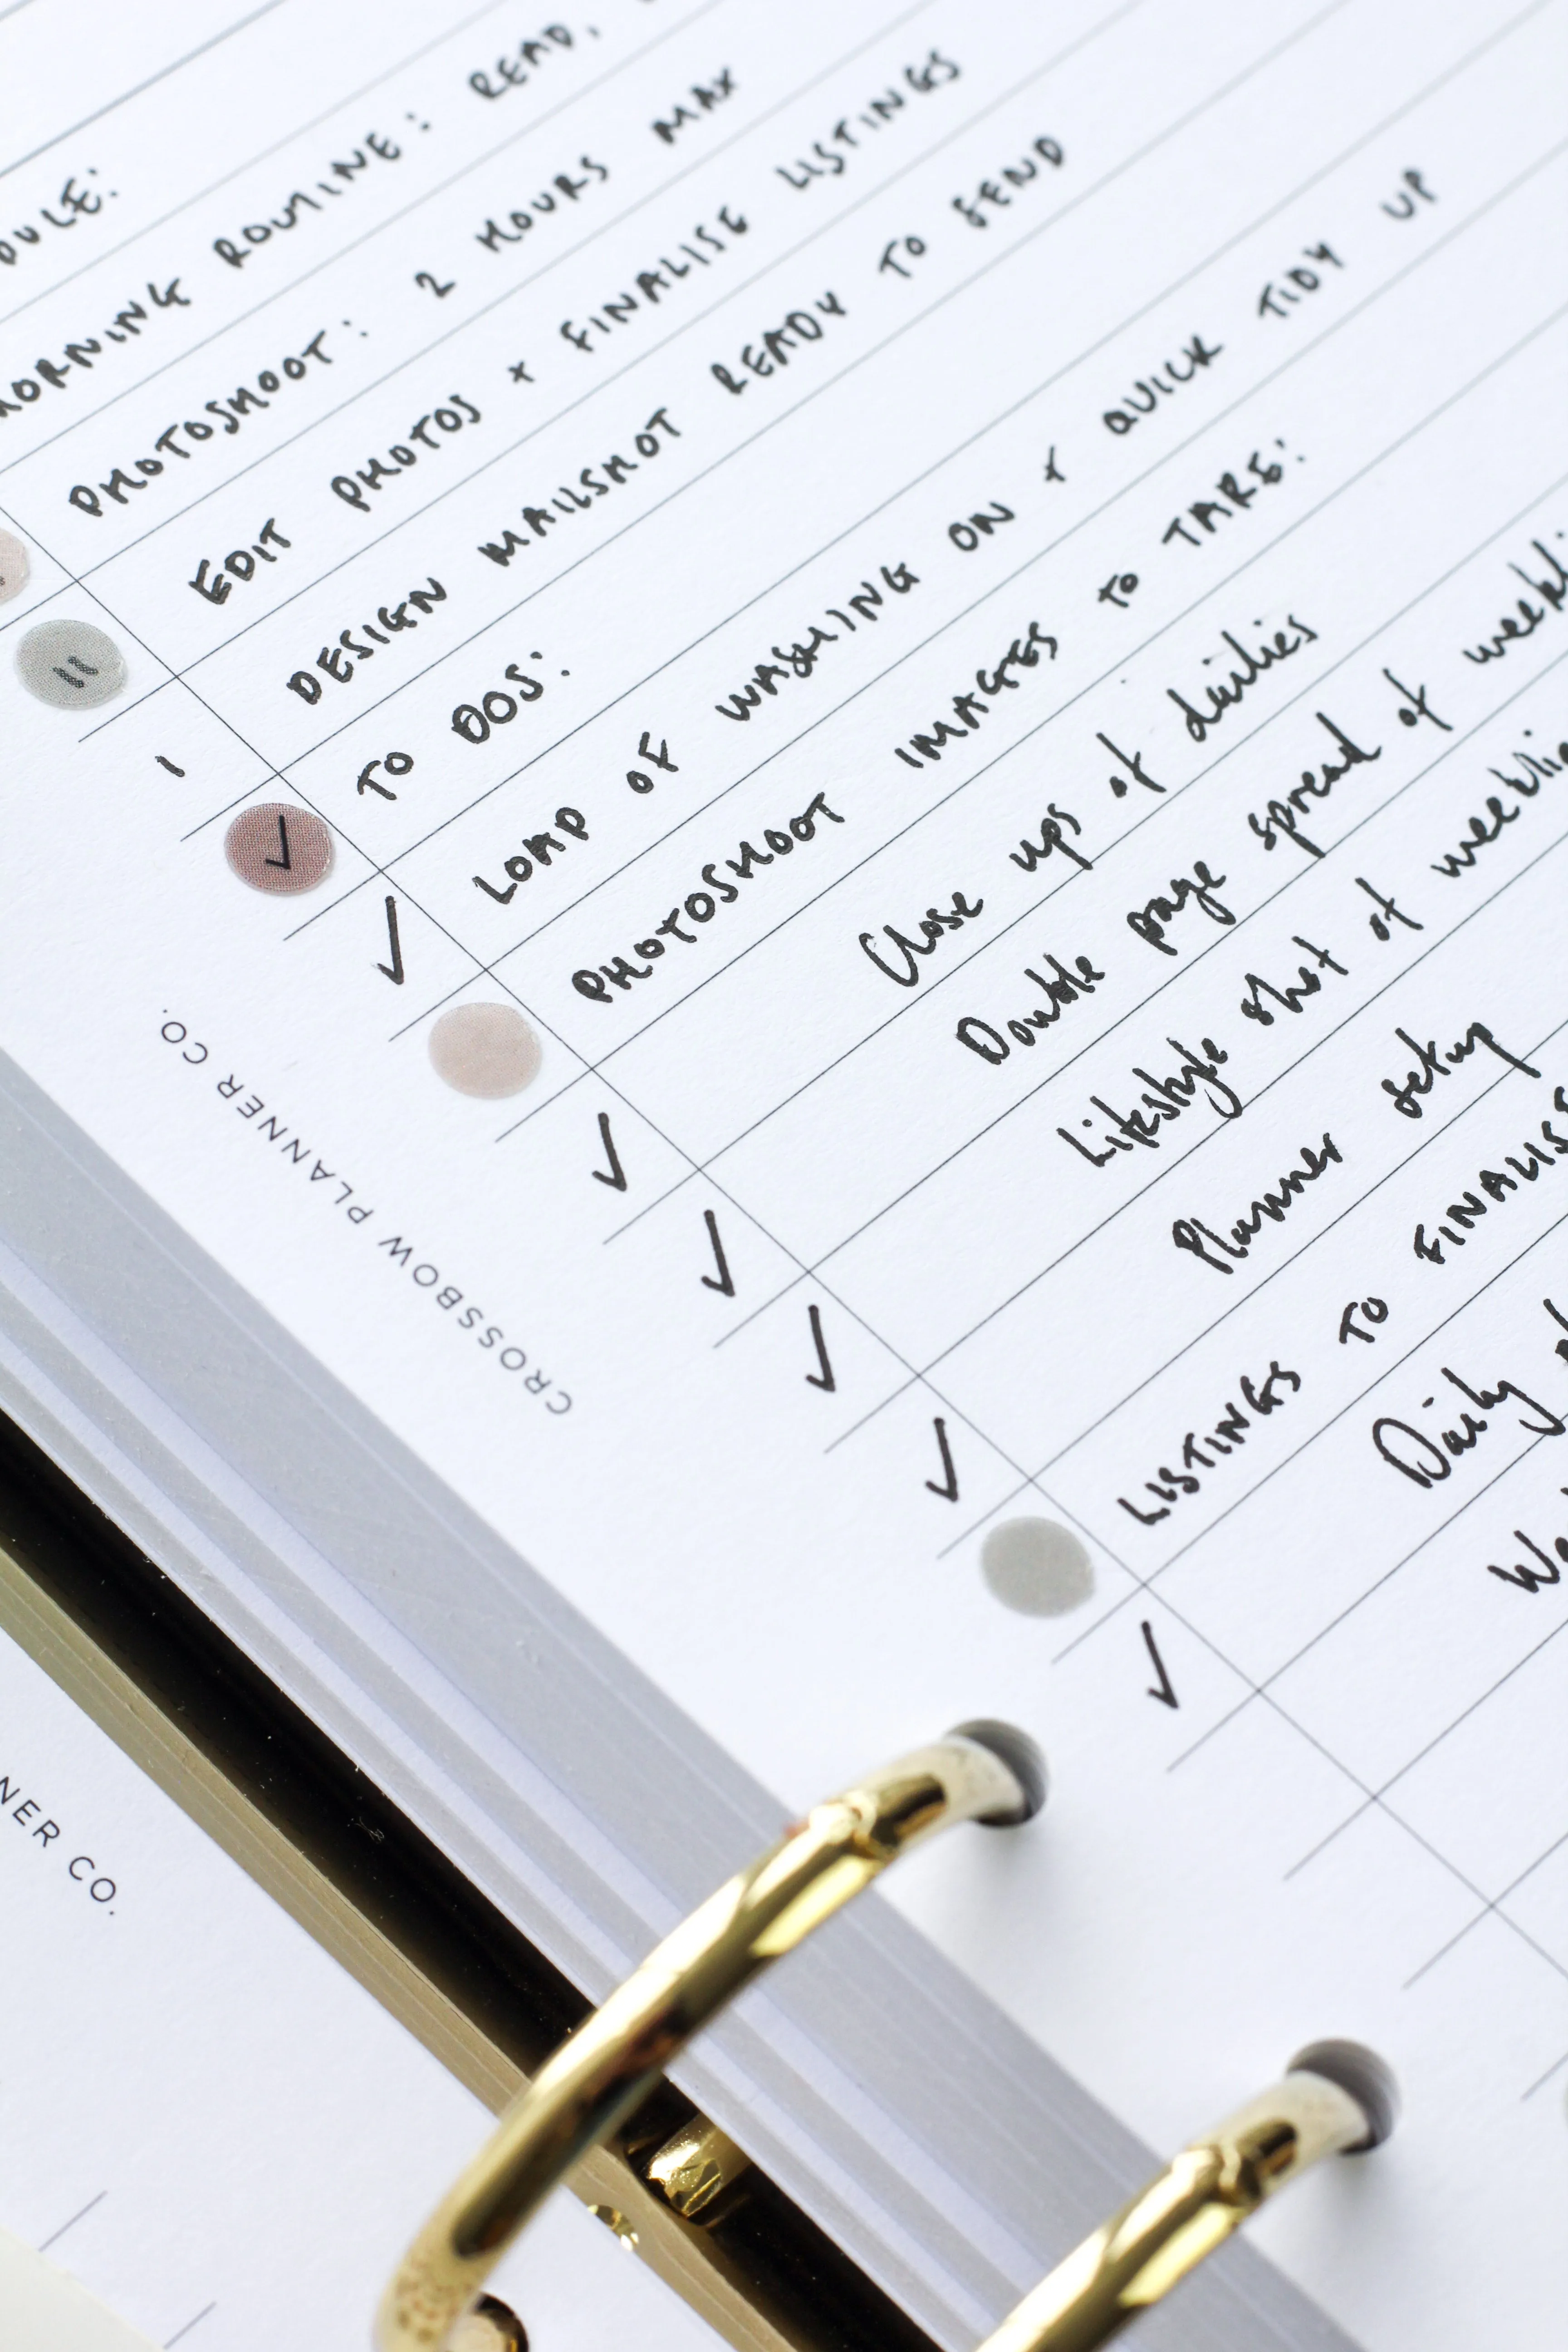 MORNING ROUTINE: READ,
PHOTOSHOOT: 2 HOURS MAX
EDIT PHOTOS + FINALISE LISTINGS
DESIGN MAILSHOT READY TO SEND
TO DOS:
LOAD OF WASHING ON + QUICK TIDY UP
PHOTOSHOOT IMAGES TO TAKE:
Close ups of dailies
Double page spread of
Lifestyle shot of
Planner setup
LISTINGS TO FINALISE
Daily
CROSSBOW PLANNER CO.
NER CO.